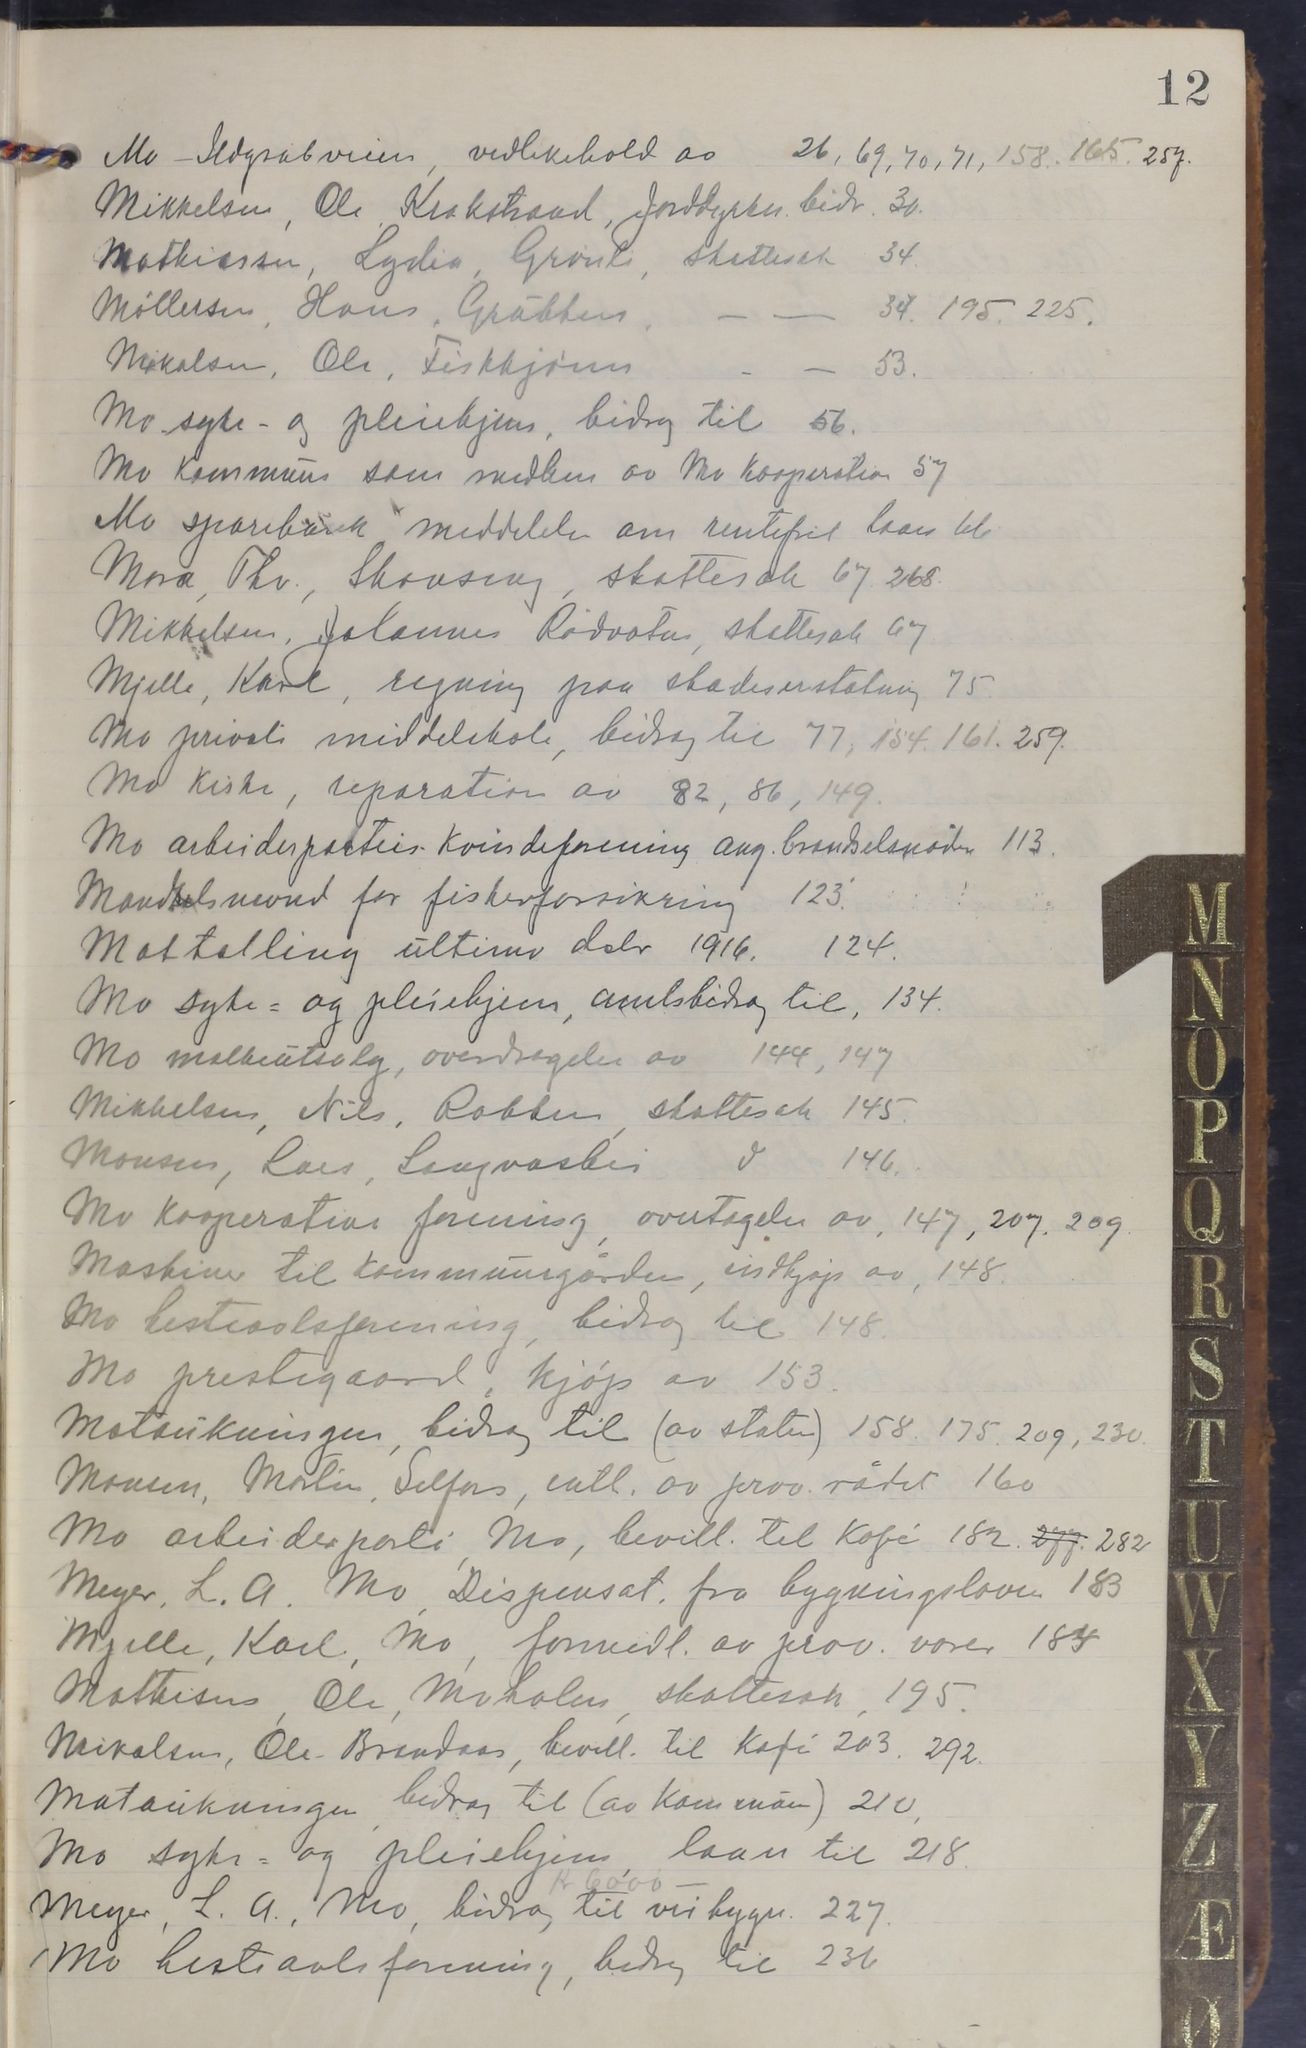 12
Mo - Ildgrubveien, vedlikehold av 26, 69, 70, 71, 158. 165. 257.
Mikkelsen, Ole, Krokstrand, Jorddyrkn. bidr. 30.
Mathiassen, Lydia, Grønli, skattesak 34.
Møllersen, Hans, Grubben, — — 34. 195. 225.
Mikalsen, Ole, Fiskkjønn - — 53.
Mo syke- og pleiehjem, bidrag til 56.
Mo kommune som medlem av Mo kooperation 57
Mo sparebank meddelelse om rentefrit laan 66
Mora, Thv., Skonseng, skattesak 67. 268.
Mikkelsen, Johannes Rødvatn, skattesak 67
Mjelle, Karl, regning paa skadeserstatning 75.
Mo private middelskole, bidrag til 77, 154. 161. 259.
Mo kirke, reparation av 82, 86, 149.
Mo arbeiderpartis kvindeforening ang. brændselsnøden 113.
Mandtalsnevnd for fiskerforsikring 123.
Mattælling ultimo debr 1916. 124.
Mo syke= og pleiehjem, amtsbidrag til, 134.
Mo melkeutsalg, overdragelse av 144, 147
Mikkelsen, Nils, Rabben, skattesak 145.
Monsen, Lars, Langvashei d 146.
Mo kooperative forening, overtagelse av, 147, 207. 209.
Maskiner til kommunegården, indkjøp av, 148.
Mo hesteavlsforening, bidrag til 148.
Mo prestegaard, kjøp av 153.
Mataukningen, bidrag til (av staten) 158. 175. 209, 230.
Monsen, Martin, Selfors, entl. av prov. rådet 160
Mo arbeiderparti, Mo, bevill. til Kafé 182. 277. 282
Meyer, L. A. Mo, Dispensat. fra bygningsloven 183
Mjelle, Karl, Mo, formidl. av prov. varer 184
Mathisen, Ole, Moholm, skattesak, 195.
Mikalsen, Ole - Brendaas, bevill. til Kafé 203. 292.
Mataukningen, bidrag til (av kommunen) 210,
Mo syke= og pleiehjem, laan til 218.
kr 6000 —
Meyer, L. A., Mo, bidrag til veibygn. 227.
Mo hesteavlsforening, bidrag til 236
M
N
O
P
Q
R
S
T
U
W
X
Y
Z
Æ
Ø